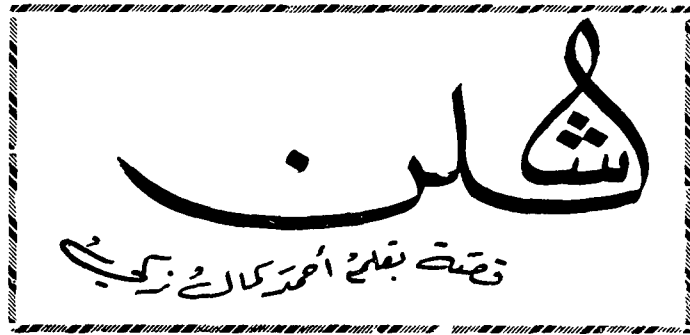 شلن
قصة بقلم أحمد كمال زكي